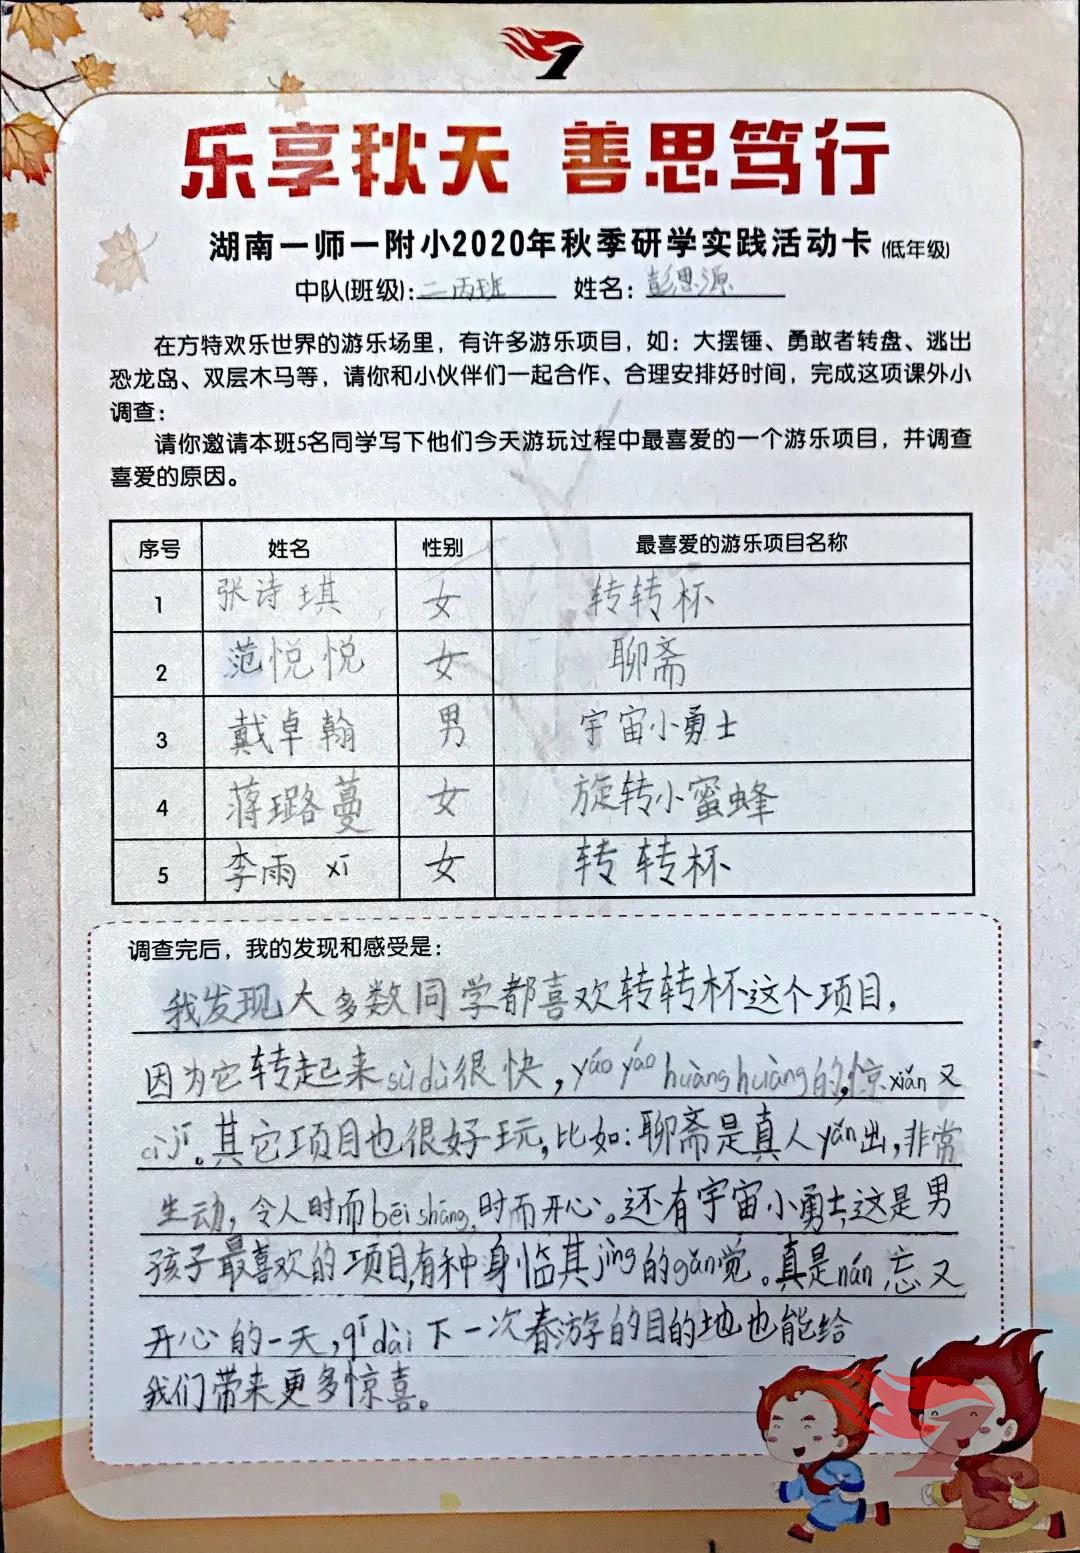 乐享秋天 善思笃行
湖南一师一附小2020年秋季研学实践活动卡(低年级)
中队(班级):二丙班 姓名:彭思源
在方特欢乐世界的游乐场里，有许多游乐项目，如：大摆锤、勇敢者转盘、逃出
恐龙岛、双层木马等，请你和小伙伴们一起合作、合理安排好时间，完成这项课外小
调查：
请你邀请本班5名同学写下他们今天游玩过程中最喜爱的一个游乐项目，并调查
喜爱的原因。
序号 姓名 性别 最喜爱的游乐项目名称
1 张诗琪 女 转转杯
2 范悦悦 女 聊斋
3 戴卓翰 男 宇宙小勇士
4 蒋璐蔓 女 旋转小蜜蜂
5 李雨 xī 女 转转杯
调查完后，我的发现和感受是：
我发现大多数同学都喜欢转转杯这个项目，
因为它转起来sùdù很快，yáo yáo huàng huàng的，惊xiǎn又
cìjī。其它项目也很好玩，比如：聊斋是真人yǎn出，非常
生动，令人时而bēi shāng，时而开心。还有宇宙小勇士，这是男
孩子最喜欢的项目，有种身临其jìng的gǎn觉。真是nán忘又
开心的一天，qī dài下一次春游学的目的地也能给
我们带来更多惊喜。